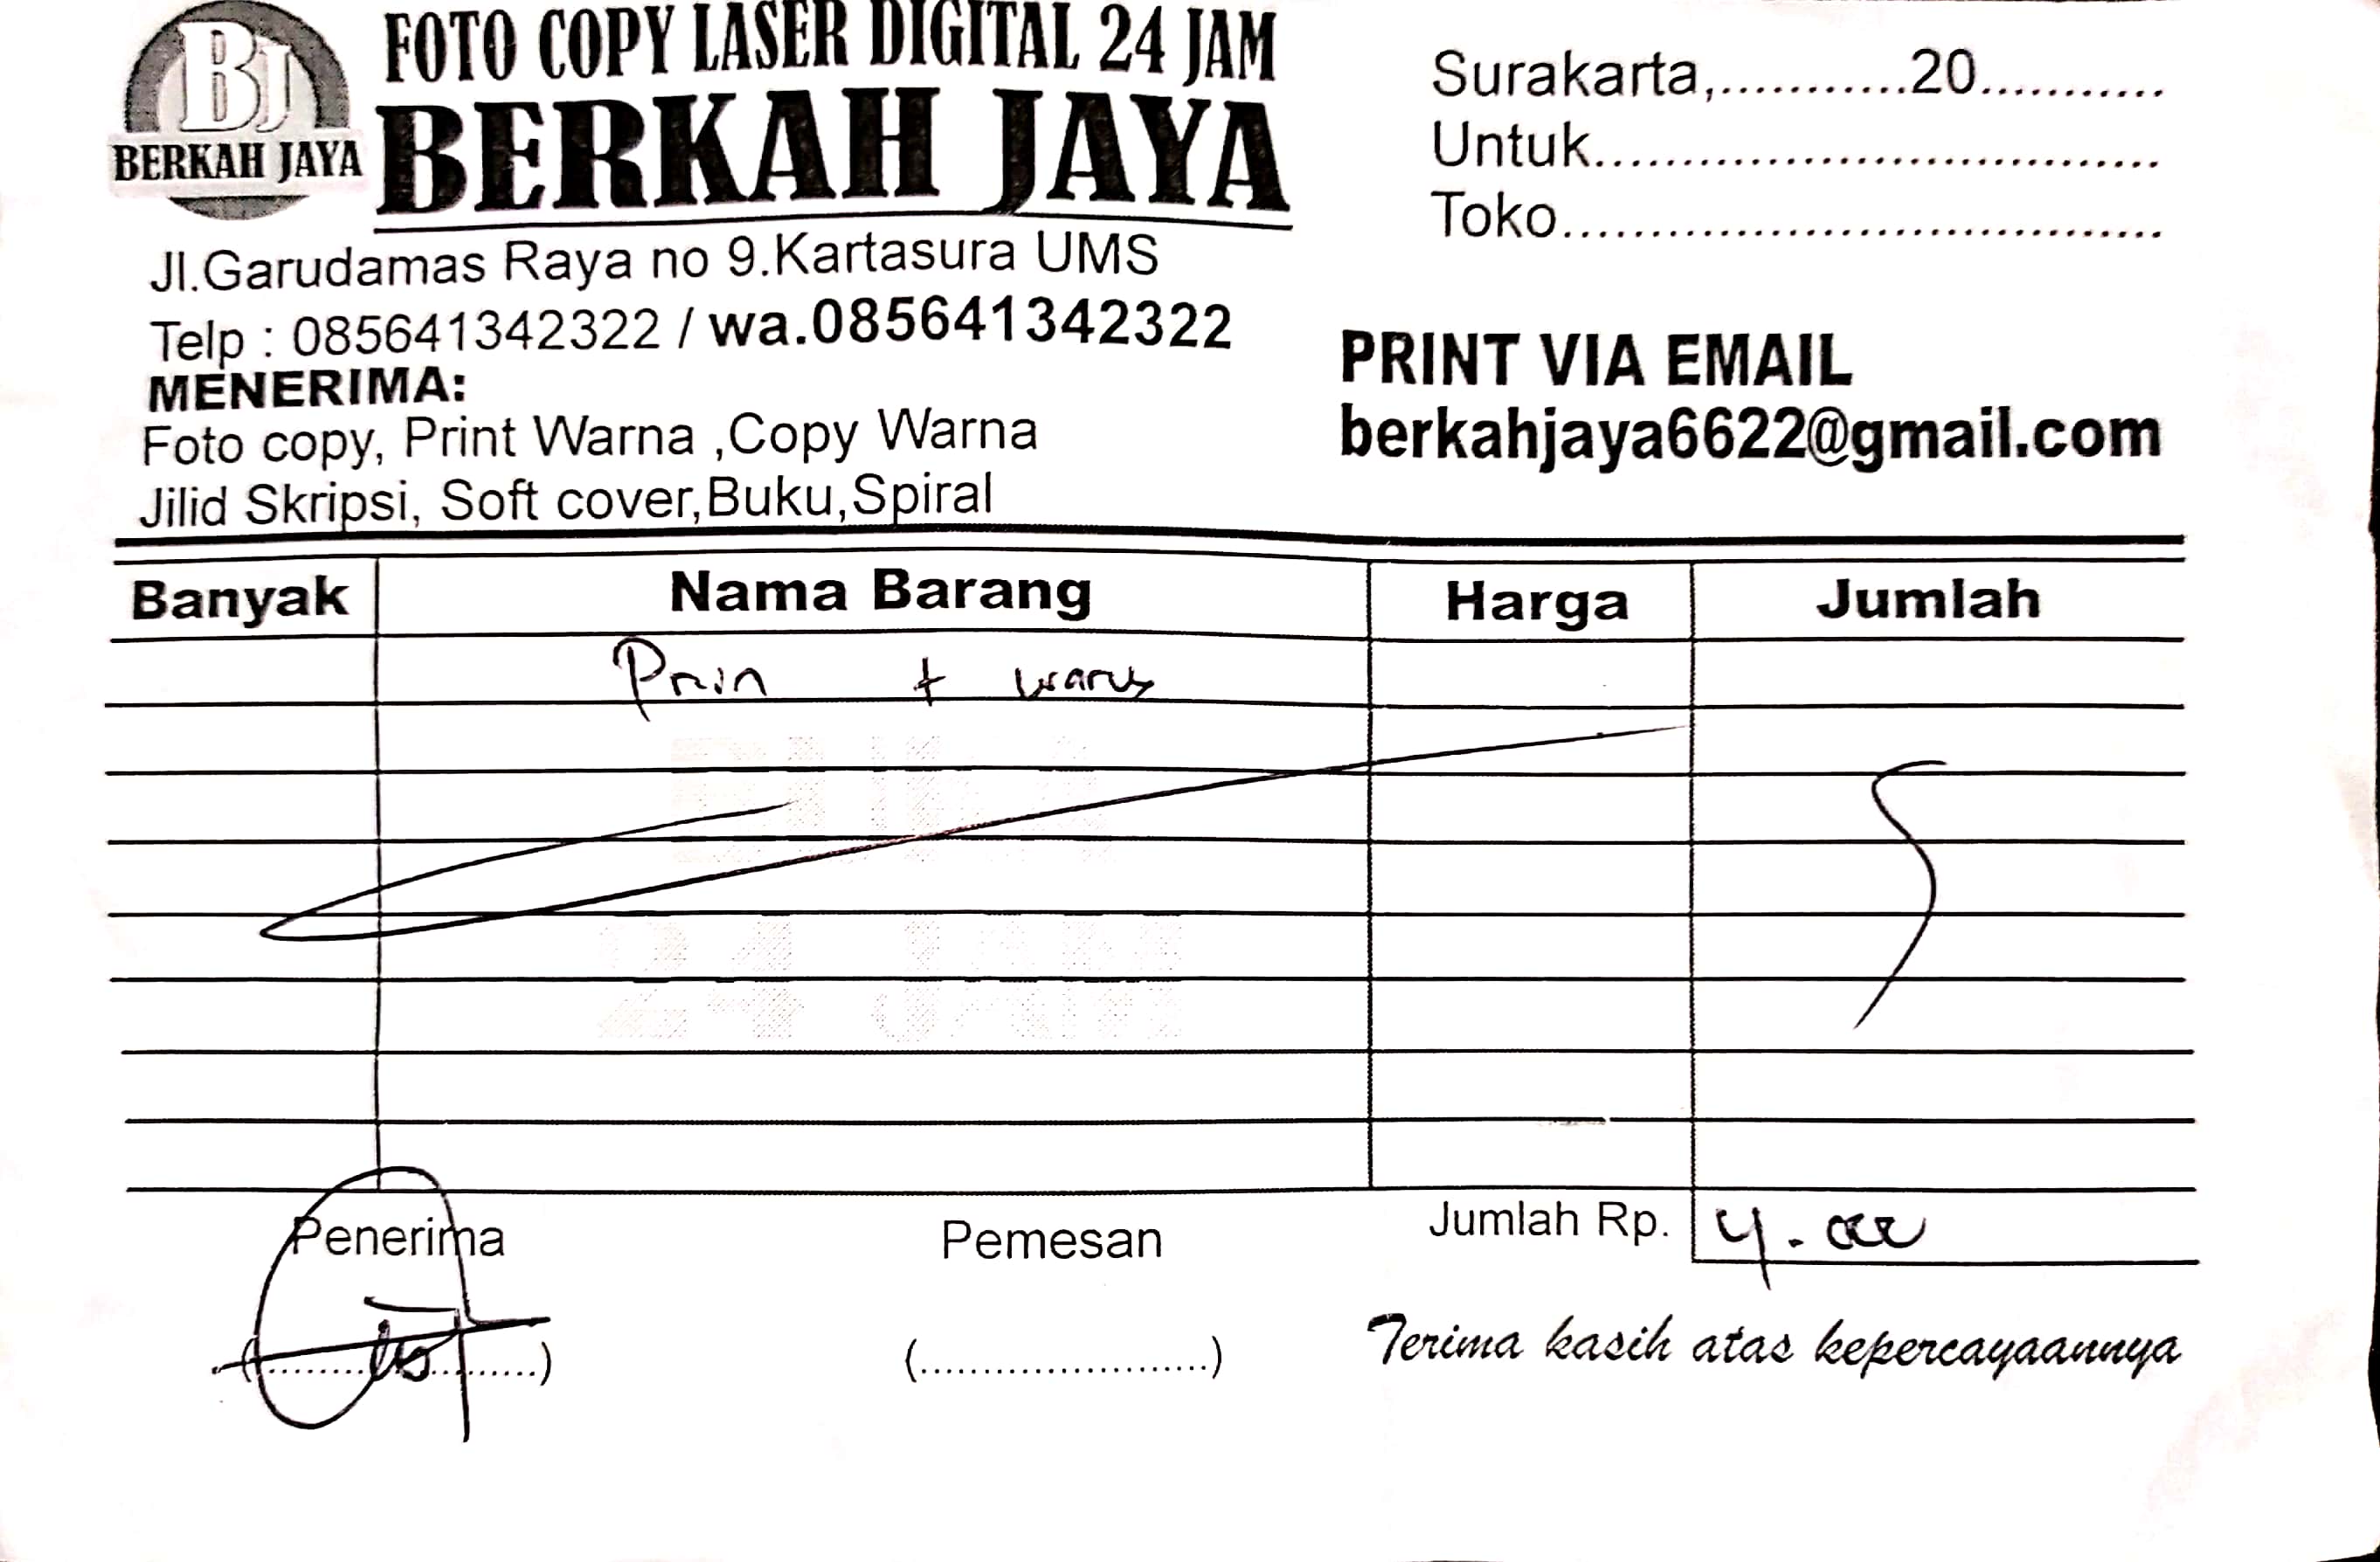 BJ
BERKAH JAYA
FOTO COPY LASER DIGITAL 24 JAM
BERKAH JAYA
Jl.Garudamas Raya no 9.Kartasura UMS
Telp : 085641342322 / wa.085641342322
MENERIMA:
Foto copy, Print Warna ,Copy Warna
Jilid Skripsi, Soft cover,Buku,Spiral
Surakarta,...........20...........
Untuk.................................
Toko...................................
PRINT VIA EMAIL
berkahjaya6622@gmail.com
Banyak Nama Barang Harga Jumlah
Prin +
24 JAM
Penerima Pemesan Jumlah Rp.
(......................) (......................)
Terima kasih atas kepercayaannya